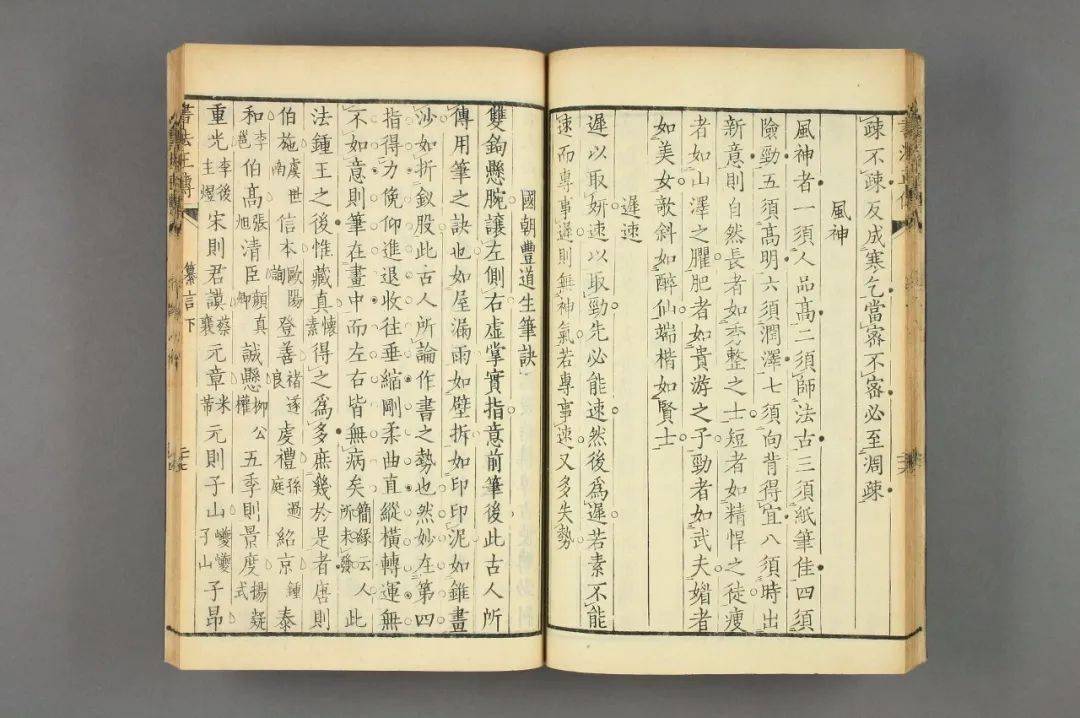 疎不疎反成寒乞當宻不宻必至凋疎
風神
風神者一須人品髙二須師法古三須紙筆佳四須
險勁五須髙明六須潤澤七須向背得宜八須時出
新意則自然長者如秀整之士短者如精悍之徒瘦
者如山澤之臞肥者如貴游之子勁者如武夫媚者
如美女欹斜如醉仙端楷如賢士
遲速
遲以取妍速以取勁先必能速然後爲遲若素不能
速而專事遲則無神氣若專事速又多失勢
國朝豐道生筆訣
雙鈎懸腕讓左側右虛掌實指意前筆後此古人所
傳用筆之訣也如屋漏雨如壁拆如印印泥如錐畫
沙如折釵股此古人所論作書之勢也然妙在第四
指得力俛仰進退收往垂縮剛柔曲直縱橫轉運無
不如意則筆在畫中而左右皆無病矣簡緣云人所未發此
法鍾王之後惟藏真懷素得之爲多庶幾於是者唐則
伯施虞世南信本歐陽詢登善褚遂良虔禮孫過庭紹京鍾泰
和李邕伯髙張旭清臣顔真卿誠懸柳公權五季則景度楊凝式
重光李後主煜宋則君謨蔡襄元章米芾元則子山巎巎子山子昂
書法正傳 纂言下